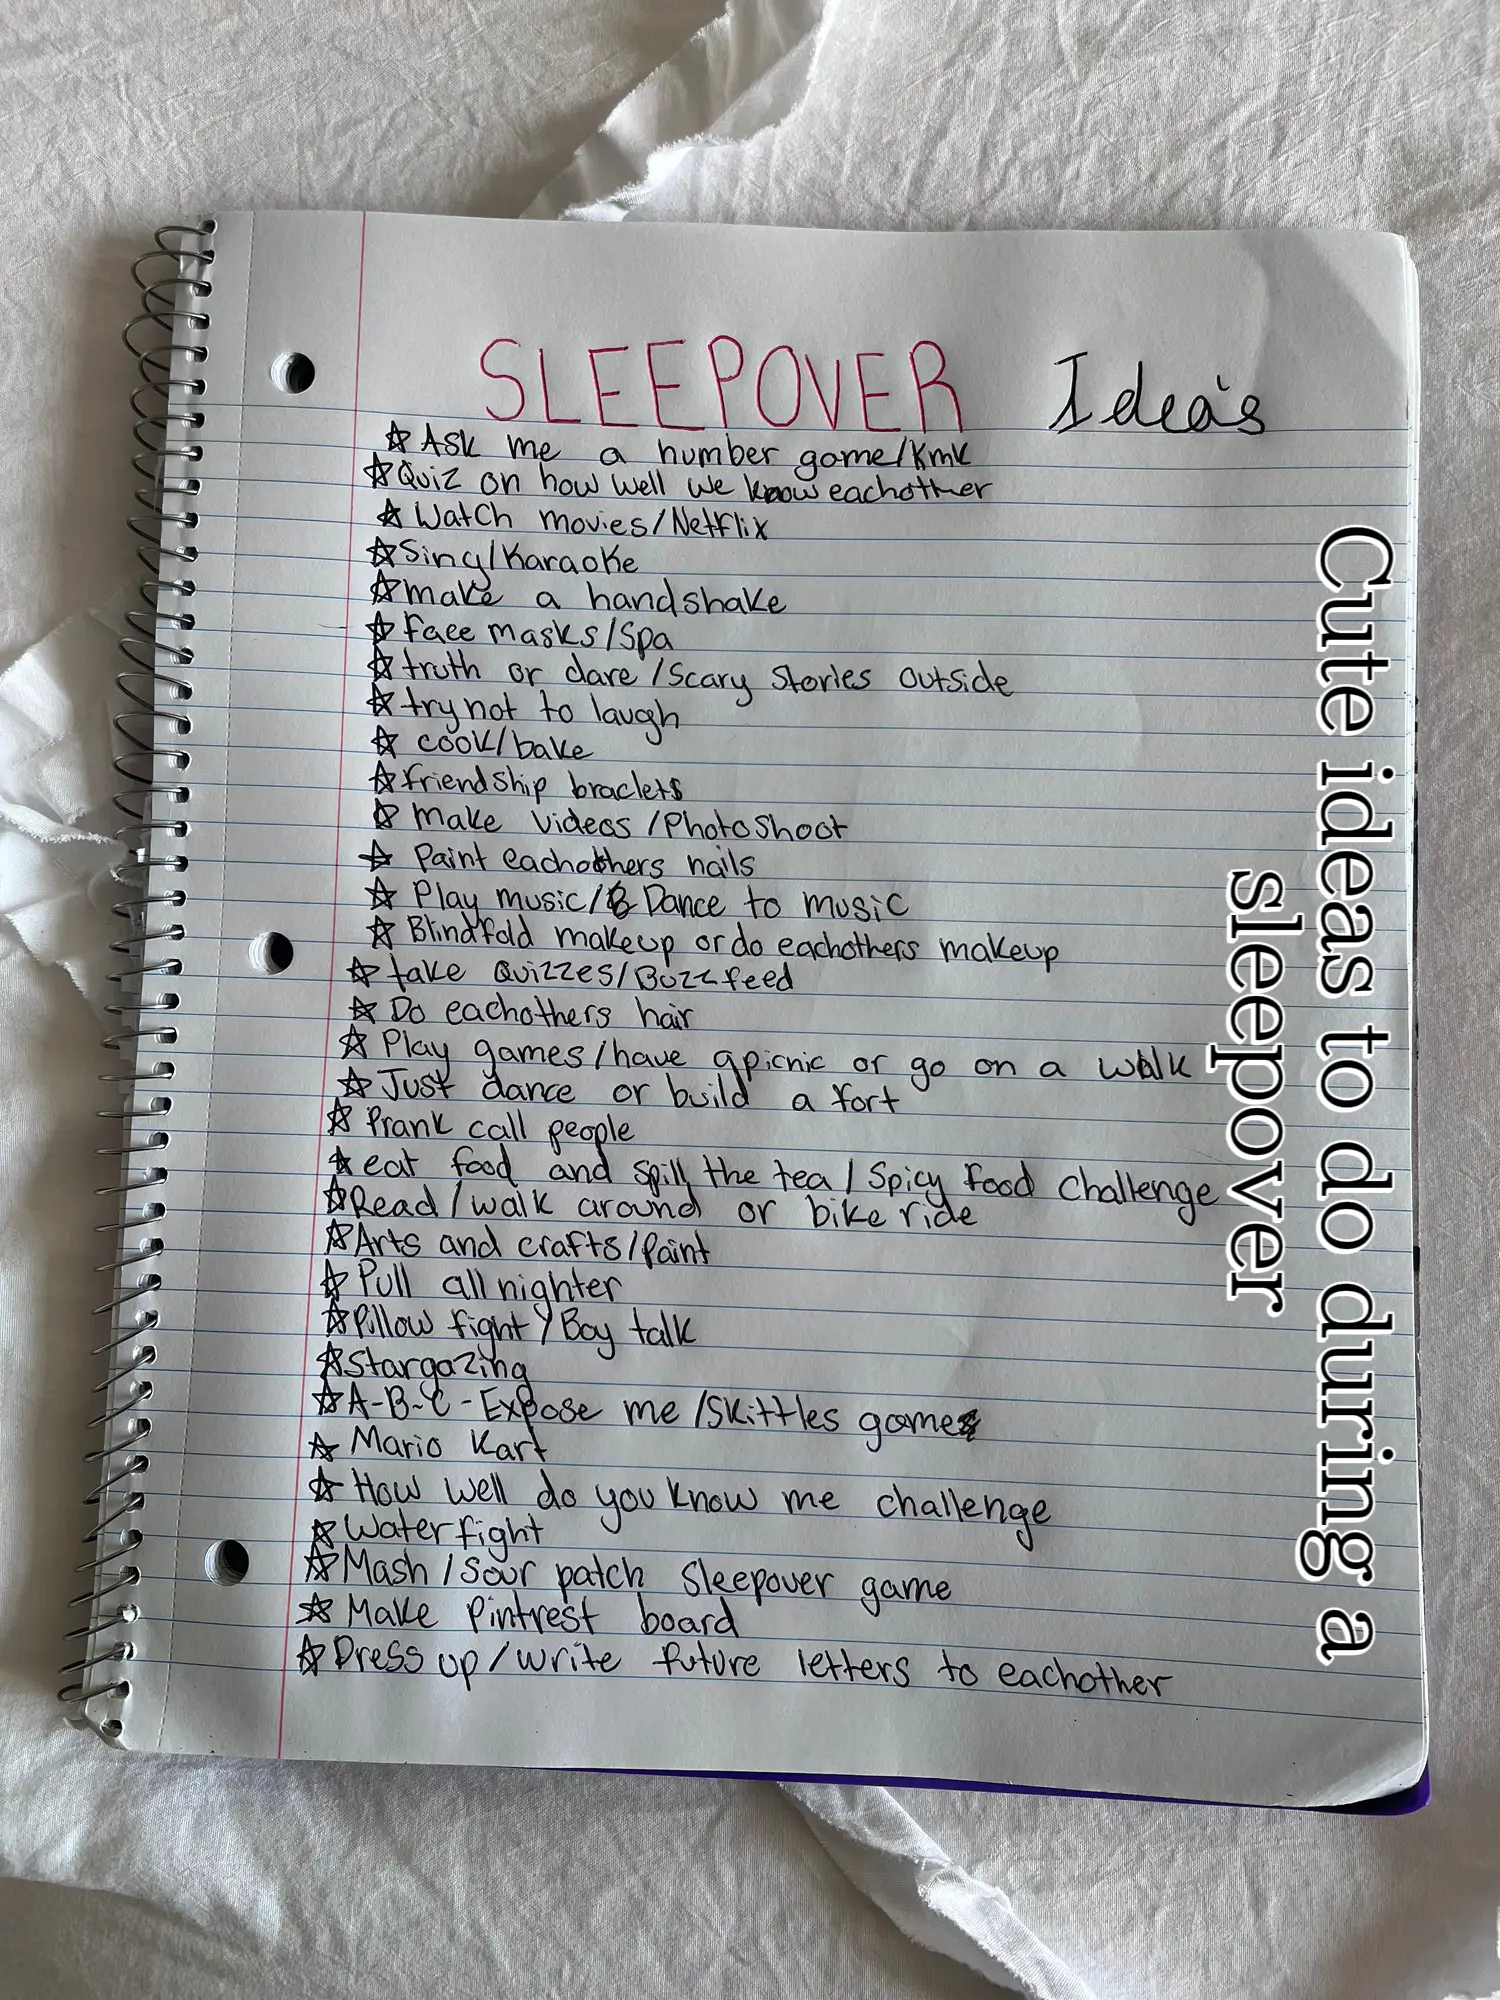 SLEEPOVER Idea's
☆ Ask me a number game/kmk
☆ Quiz on how well we know eachother
☆ Watch movies/Netflix
☆ Sing/Karaoke
☆ make a handshake
☆ face masks/Spa
☆ truth or dare/Scary Stories outside
☆ try not to laugh
☆ cook/bake
☆ friendship braclets
☆ Make videos/Photoshoot
☆ Paint eachothers nails
☆ Play music/& Dance to music
☆ Blindfold makeup or do eachothers makeup
☆ take Quizzes/Buzzfeed
☆ Do eachothers hair
☆ Play games/have a picnic or go on a walk
☆ Just dance or build a fort
☆ Prank call people
☆ eat food and spill the tea/Spicy food challenge
☆ Read/walk around or bike ride
☆ Arts and crafts/Paint
☆ Pull all nighter
☆ Pillow fight/Boy talk
☆ Stargazing
☆ A-B-C-Expose me/Skittles game
☆ Mario Kart
☆ How well do you know me challenge
☆ Water fight
☆ Mash/Sour patch sleepover game
☆ Make Pintrest board
☆ Dress up/write future letters to eachother
Cute ideas to do during a
sleepover